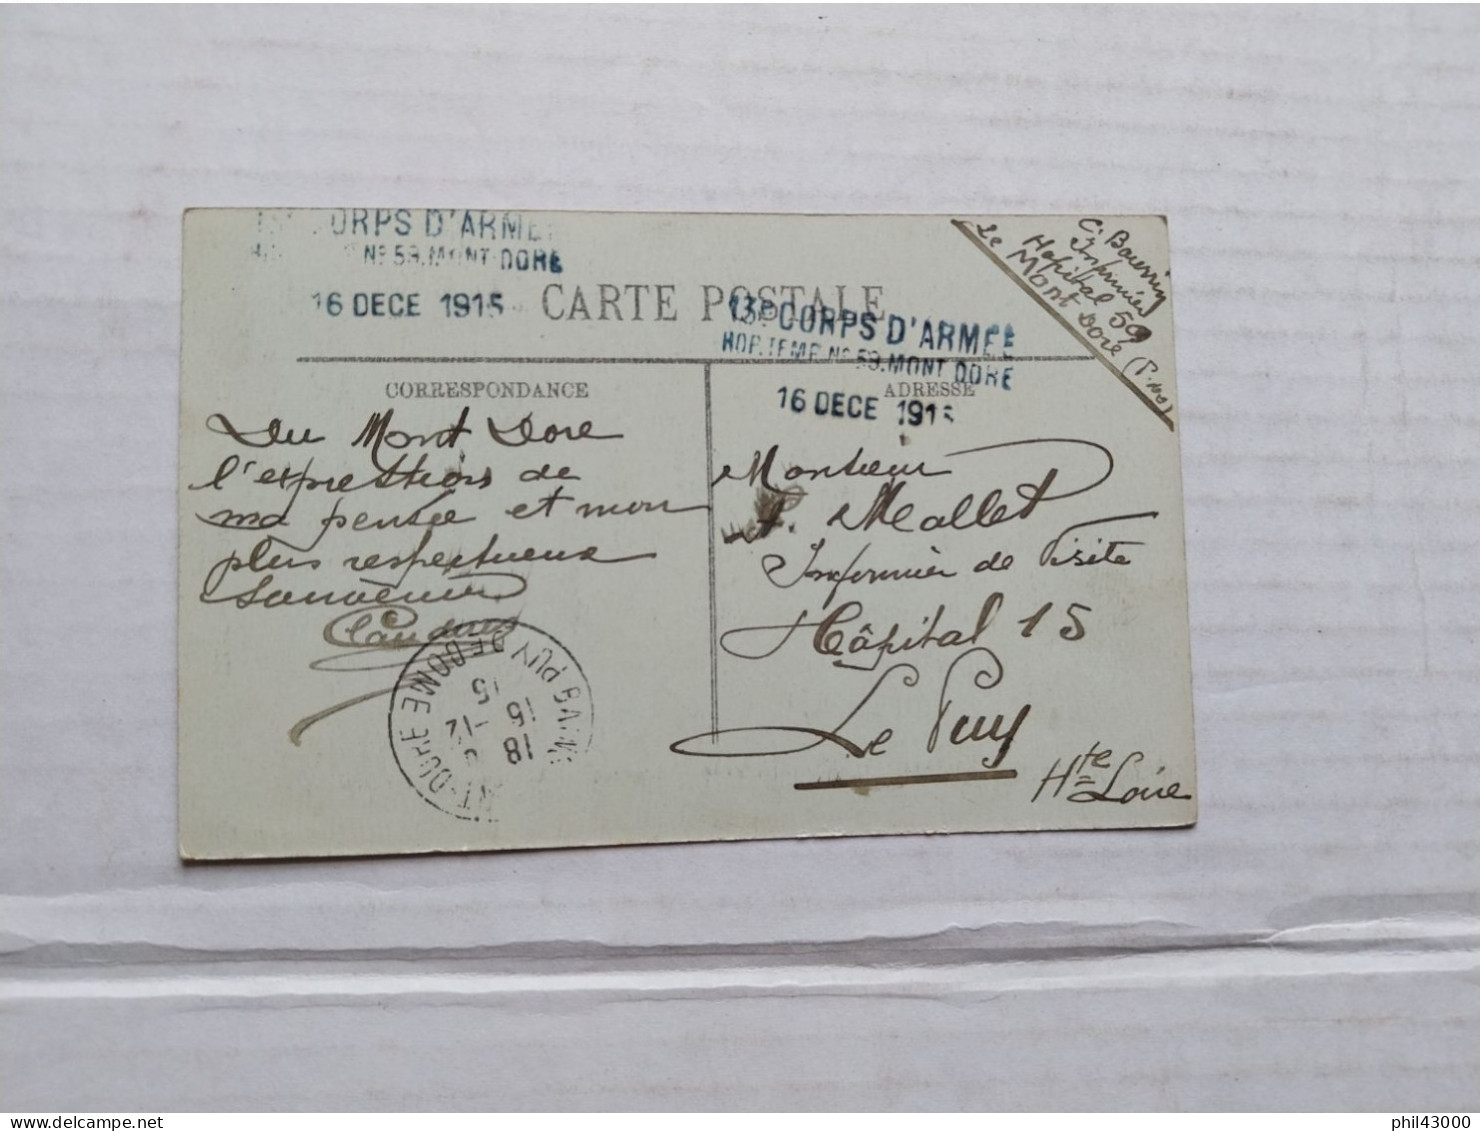 CORPS D'ARMÉE
Nº 59. MONT-DORE
16 DECE 1915
CARTE POSTALE
13E CORPS D'ARMÉE
HOP. TEMP. Nº 59. MONT DORE
16 DECE 1915
C. Bouvier
Infirmier
Hopital 59
Le Mont Dore (P. de D)
CORRESPONDANCE
ADRESSE
Du Mont Dore
l'expressions de
ma pensée et mon
plus respectueux
souvenir
Claudius
MONT-DORE BAINS PUY DE DOME
18
15 -12
15
Monsieur
A. Mallet
Infirmier de Visite
Hôpital 15
Le Puy
Hte Loire
phil43000